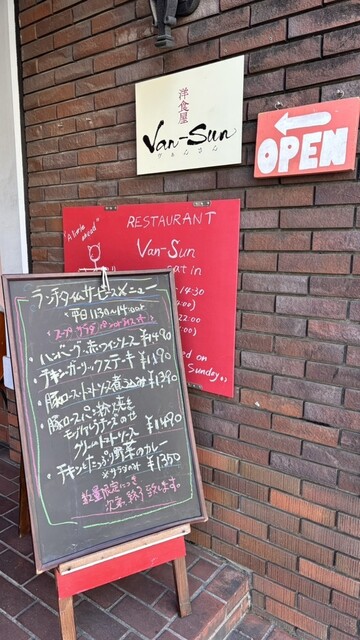 洋食屋
Van-Sun
ヴぁんさん
OPEN
RESTAURANT
"A little ahead"
Van-Sun
eat in
14:30
22:00
ed on
Sunday
ランチタイムサービスメニュー
平日11:30〜14:00
スープ・サラダ
・ハンバーグ 赤ワインソース ¥1490
・チキンガーリックステーキ ¥1190
・豚ロース トマトソース煮込み ¥1390
・豚ロースパン粉焼き
モッツァレラチーズのせ
クリームトマトソース ¥1490
・チキンとたっぷり野菜のカレー
※サラダのみ ¥1350
数量限定につき
次第、終了致します。